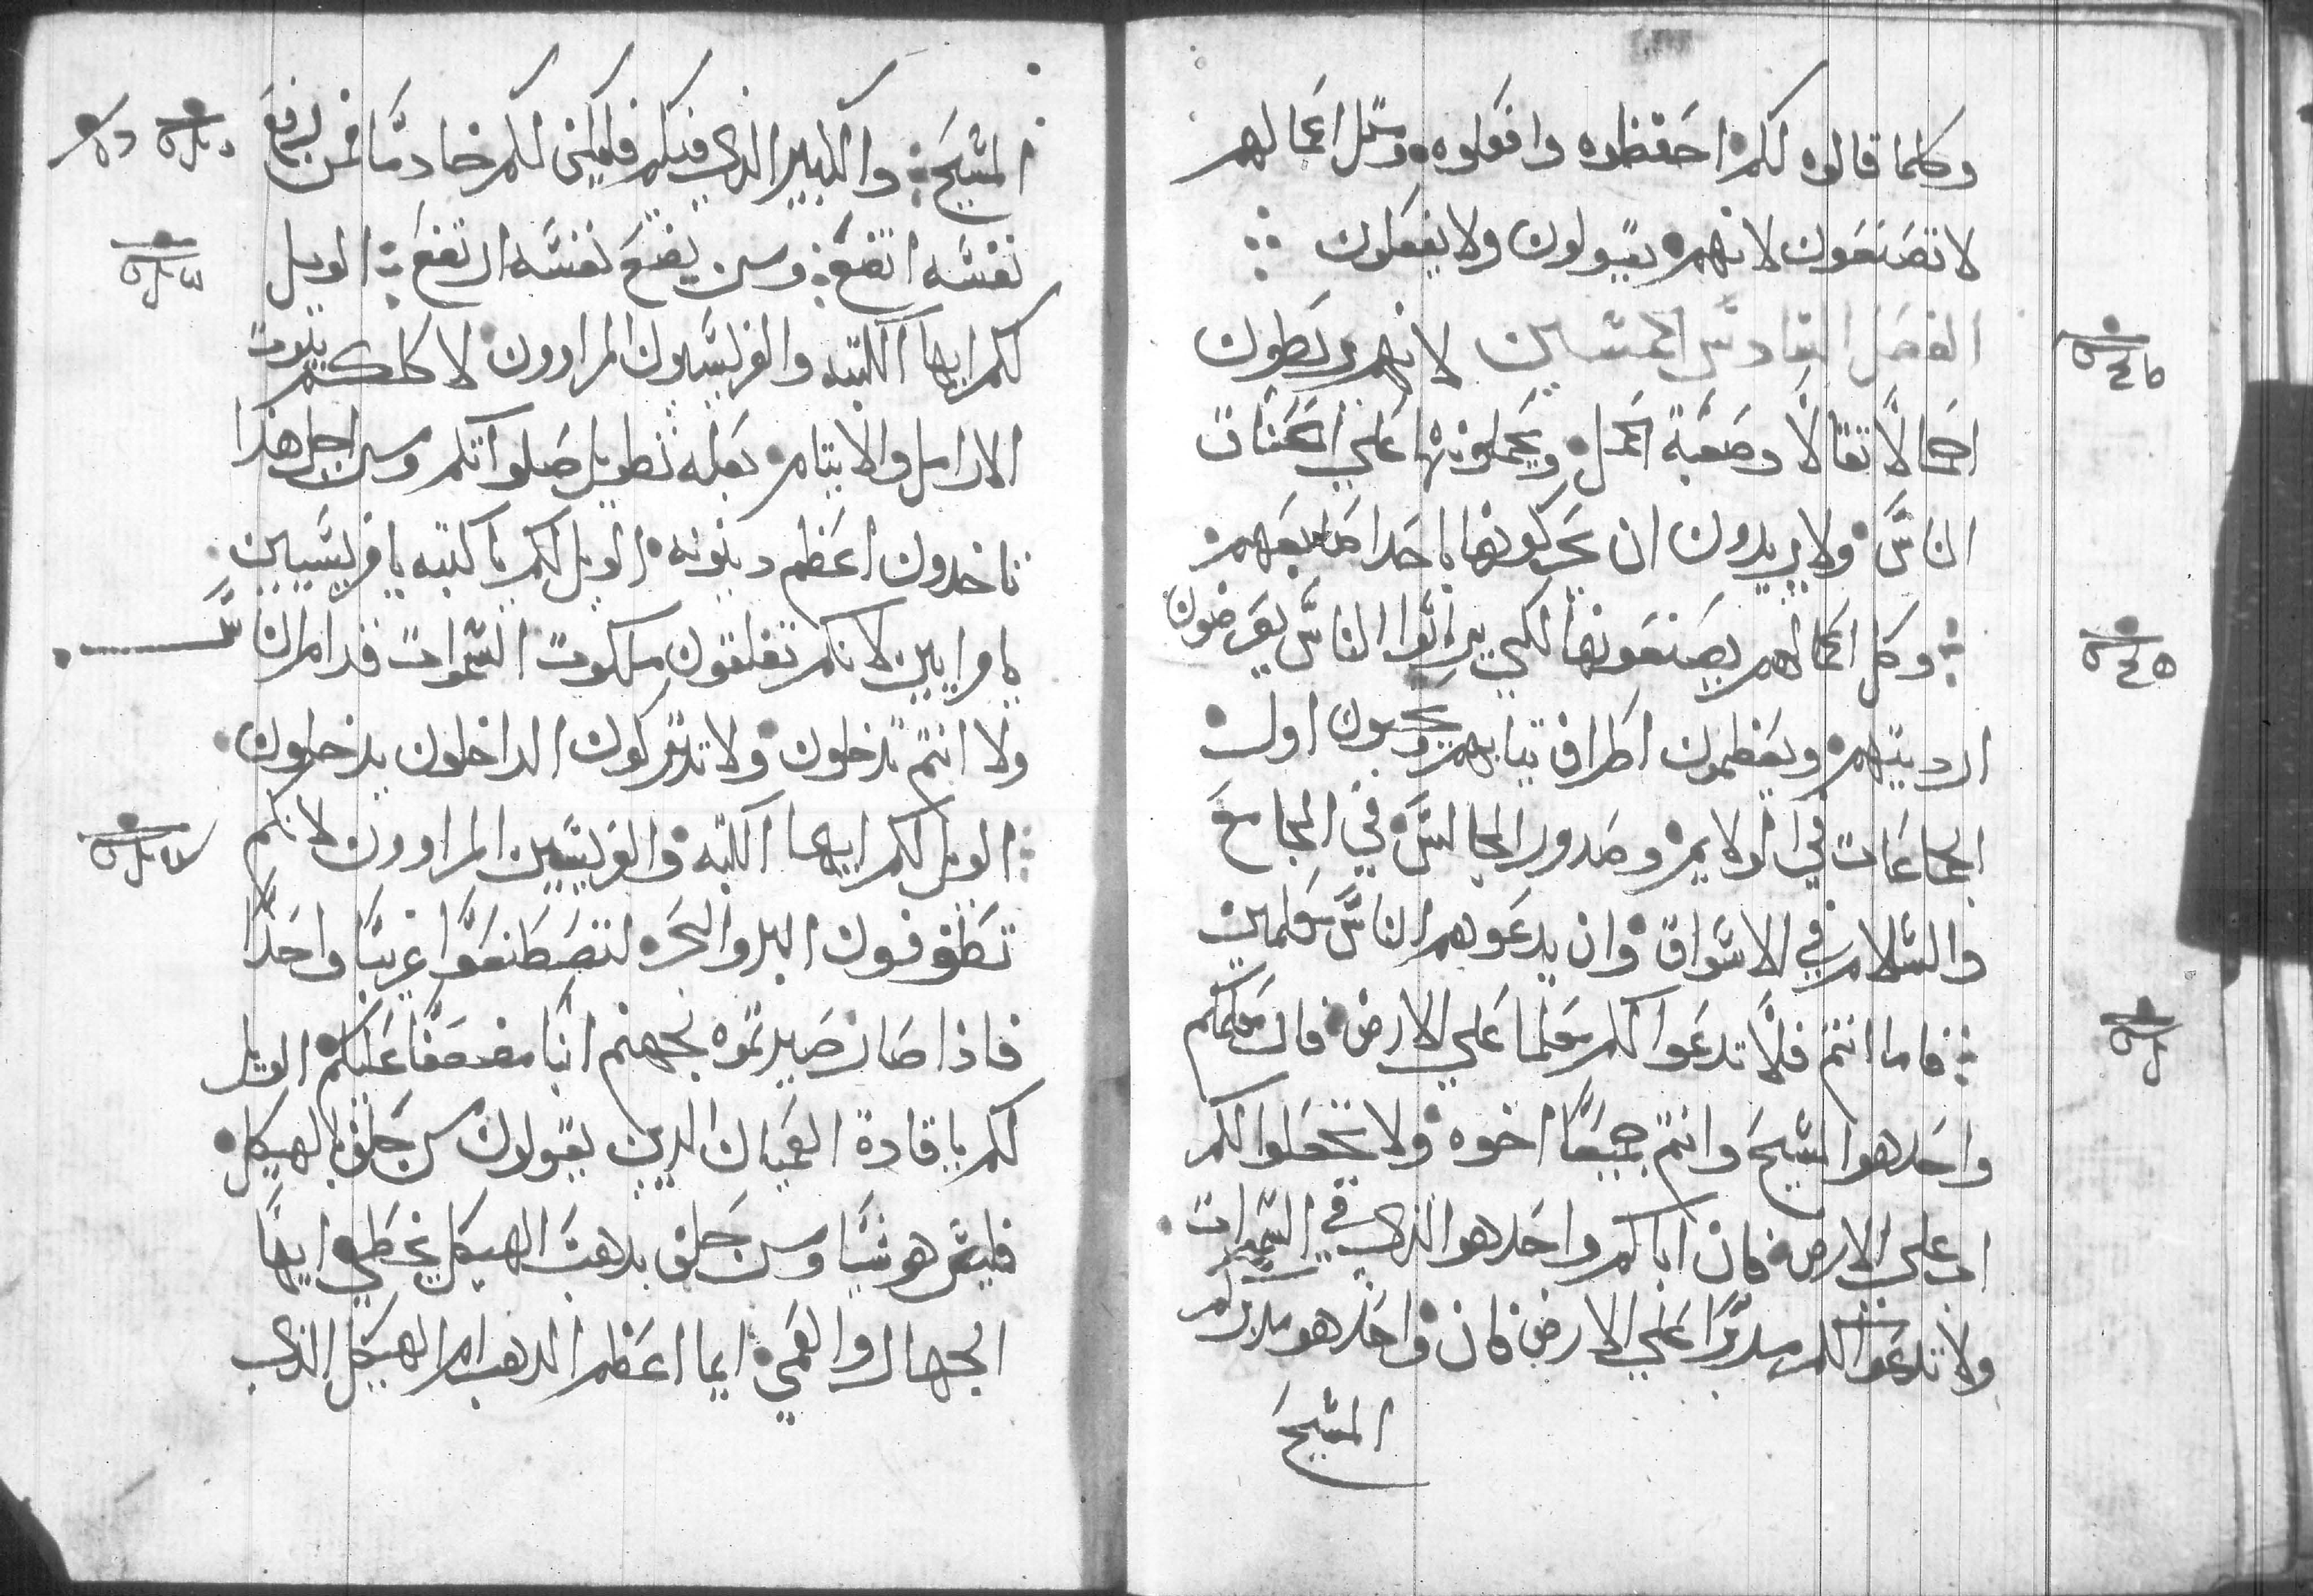 وكلما قالوه لكم احفظوه وافعلوه ومتل اعمالهم
لا تصنعون لانهم يقولون ولا يفعلون
الفصل السادس الخمسين لانهم يربطون
احمالًا تقالًا وصعبة الحمل ويحملونها علي اكتاف
الناس ولا يريدون ان يحركونها باحدا صابعهم
وكل اعمالهم يصنعونها لكي يرائوا الناس يعرضون
ارديتهم ويعظمون اطراف تيابهم ويحبون اول
الجماعات في الولايم وصدور المجالس في المجامع
والسلام في الاسواق وان يدعوهم الناس معلمين
فاما انتم فلا تدعوا لكم معلما علي الارض فان معلمكم
واحد هو المسيح وانتم جميعًا اخوه ولا تجعلوا لكم
اب علي الارض فان اباكم واحد هو الذي في السموات
ولا تدعوا لكم مدبرًا علي الارض فان واحد هو مدبركم
المسيح
المسيح والكبير الذي فيكم فليكن لكم خادمًا فمن يرفع
نفسه اتضع ومن يضع نفسه ارتفع الويل
لكم ايها الكتبه والفريسيون المراوون لاكلكم بيوت
الارامل والايتام بعلة تطويل صلواتكم ومن اجل هذا
تاخدون اعظم دينونه الويل لكم ياكتبه يا فريسيين
يا مرايين لانكم تغلقون ملكوت السموات قدام الناس
ولا انتم تدخلون ولا تتركون الداخلون يدخلون
الويل لكم ايها الكتبه والفريسيين المراوون لانكم
تطوفون البر والبحر لتصطنعوا غريبًا واحدًا
فاذا صار صيرتموه لجهنم ابنًا مضعفًا عليكم الويل
لكم يا قادة العميان الذين يقولون من حلف بالهيكل
فليس هو شيًا ومن حلف بدهب الهيكل يخطي ايها
الجهال والعمي ايما اعظم الدهب ام الهيكل الذي